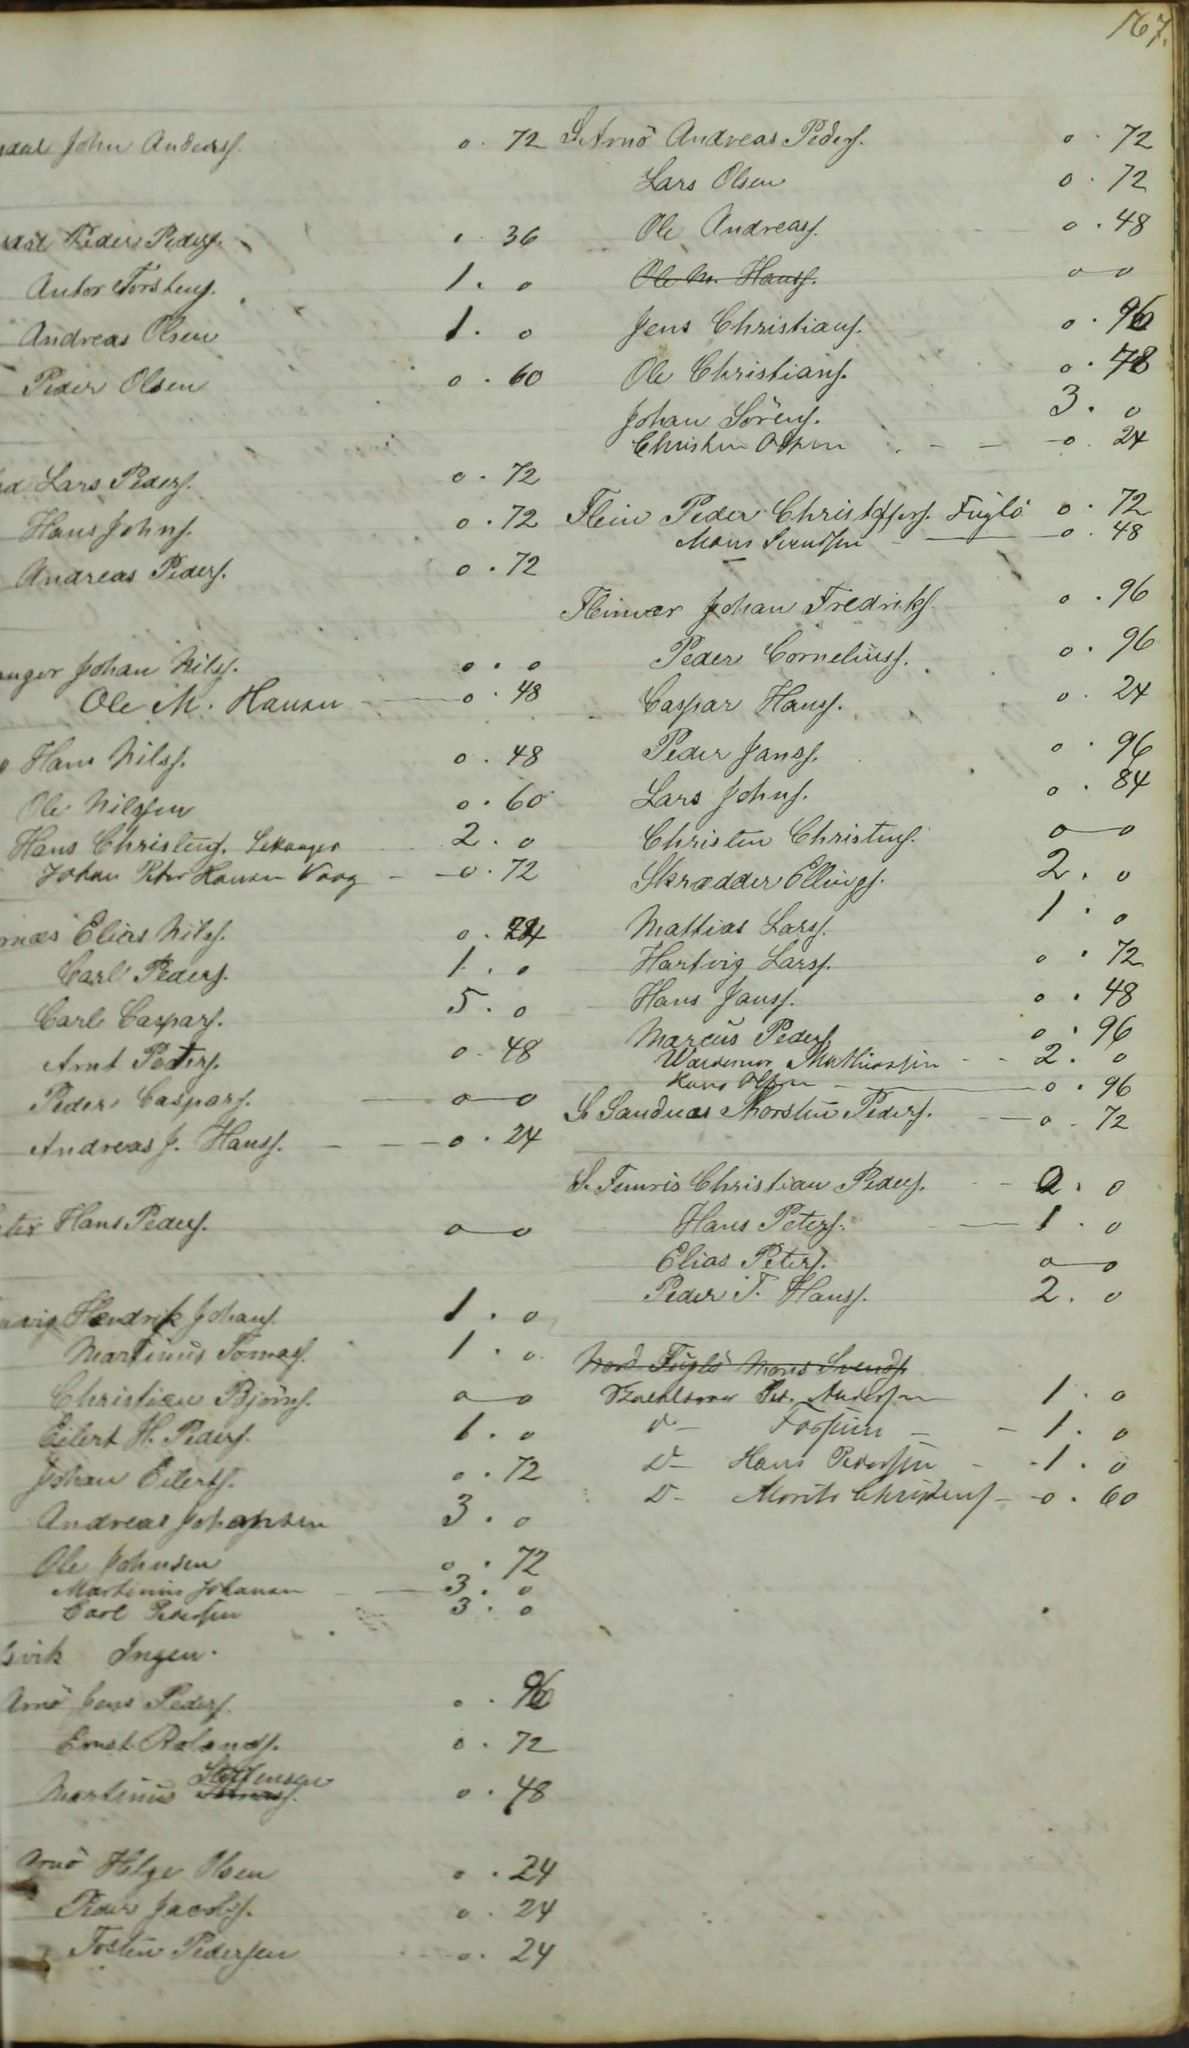 767.
John Anders. 0 . 72
Peder Peders. 0 . 36
Anton Torstens. 1 . 0
Andreas Olsen 1 . 0
Peder Olsen 0 . 60
Lars Peders. 0 . 72
Hans Johns. 0 . 72
Andreas Peders. 0 . 72
anger Johan Nils. 0 . 0
Ole M. Hansen 0 . 48
Hans Nils. 0 . 48
Ole Nilssen 0 . 60
Hans Christens. Lekanger 2 . 0
Johan Peter Hansen Vaag 0 . 72
næs Elias Nils. 0 . 24
Carl Peders. 1 . 0
Carl Caspars. 5 . 0
Arnt Peters. 0 . 48
Peder Caspars. 0 — 0
Andreas J. Hans. 0 . 24
Hans Peders. 0 — 0
vig Hendrik Johans. 1 . 0
Martinus Tomas. 1 . 0
Christian Björns. 0 — 0
Eilert H. Peders. 1 . 0
Johan Eilerts. 0 . 72
Andreas Johansen 3 . 0
Ole Johnsen 0 . 72
Martinus Johansen 3 . 0
Carl Pedersen 3 . 0
svik Ingen.
Arnö Jens Peders. 0 . 96
Ernst Rolands. 0 . 72
Steffensen
Martinus 0 . 48
Arnö Helge Olsen 0 . 24
Peder Jacobs. 0 . 24
Tosten Pedersen 0 . 24
S. Arnö Andreas Peders. 0 . 72
Lars Olsen 0 . 72
Ole Andreas. 0 . 48
Ole M. Hans. 0 — 0
Jens Christians. 0 . 96
Ole Christians. 0 . 78
Johan Sörens. 3 . 0
Christen Olsen 0 . 24
Flein Peder Christoffers. Fuglö 0 . 72
Mons Svendsen 0 . 48
Fleinvær Johan Fredriks. 0 . 96
Peder Cornelius. 0 . 96
Caspar Hans. 0 . 24
Peder Jans. 0 . 96
Lars Johns. 0 . 84
Christen Christens. 0 — 0
Skrædder Ellings. 2 . 0
Mattias Lars. 1 . 0
Hartvig Lars. 0 . 72
Hans Jans. 0 . 48
Marcus Peders. 0 . 96
Mathiassen 2 . 0
Hans Olsen 0 . 96
S. Sandnæs Thorsten Peders. 0 . 72
S. Funris Christian Peders. 2 . 0
Hans Peters. 1 . 0
Elias Peters. 0 — 0
Peder T. Hans. 2 . 0
Nord Fuglö Mons Svends.
Ped. Andersen 1 . 0
D — 1 . 0
D — Hans Pedersen 1 . 0
D — Morits Christens. 0 . 60